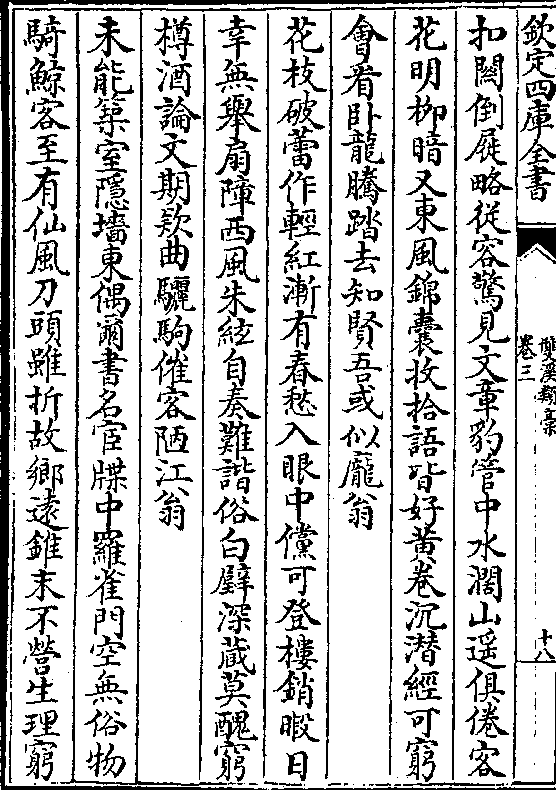 欽定四庫全書
雙溪類稾
卷三
十八
扣闗倒屣略從容驚見文章豹管中水濶山遥俱倦客
花明栁暗又東風錦囊收拾語皆好黄卷沉潜經可窮
會看卧龍騰踏去知賢吾或似龎翁
花枝破蕾作輕紅漸有春愁入眼中儻可登樓銷暇日
幸無舉扇障西風朱絃自奏難諧俗白璧深藏莫醜窮
樽酒論文期欵曲驪駒催客陋江翁
未能築室隱墻東偶爾書名宦牒中羅雀門空無俗物
騎鯨客至有仙風刀頭雖折故鄉遠錐末不營生理窮